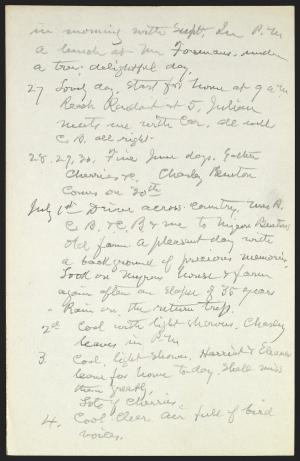 in morning with Supt. In P.M.
a lunch at Mr Foremans, under
a tree; delightful day.
27 Lovely day, start for home at 9 a m
Reach Rondout at 5, Julian
meets me with Car, all well
C B. all right.
28. 29, 30. Fine June days. Gather
Cherries &c. Charley Benton
Comes on 30th
July 1st Drive across country, Mrs B.
C B. & C, B & me to Myron Bentons
old farm. A pleasant day with
a background of precious memories.
Look on Myrons house & farm
again after an elapse of 35 years
- Rain on the return trip.
2d Cool with light showers. Charley
leaves in P.M
3 Cool, light shower. Harriet & Eleanor
leave for home to-day. Shall miss
them greatly.
Lots of Cherries.
4. Cool clear air full of bird
voices.